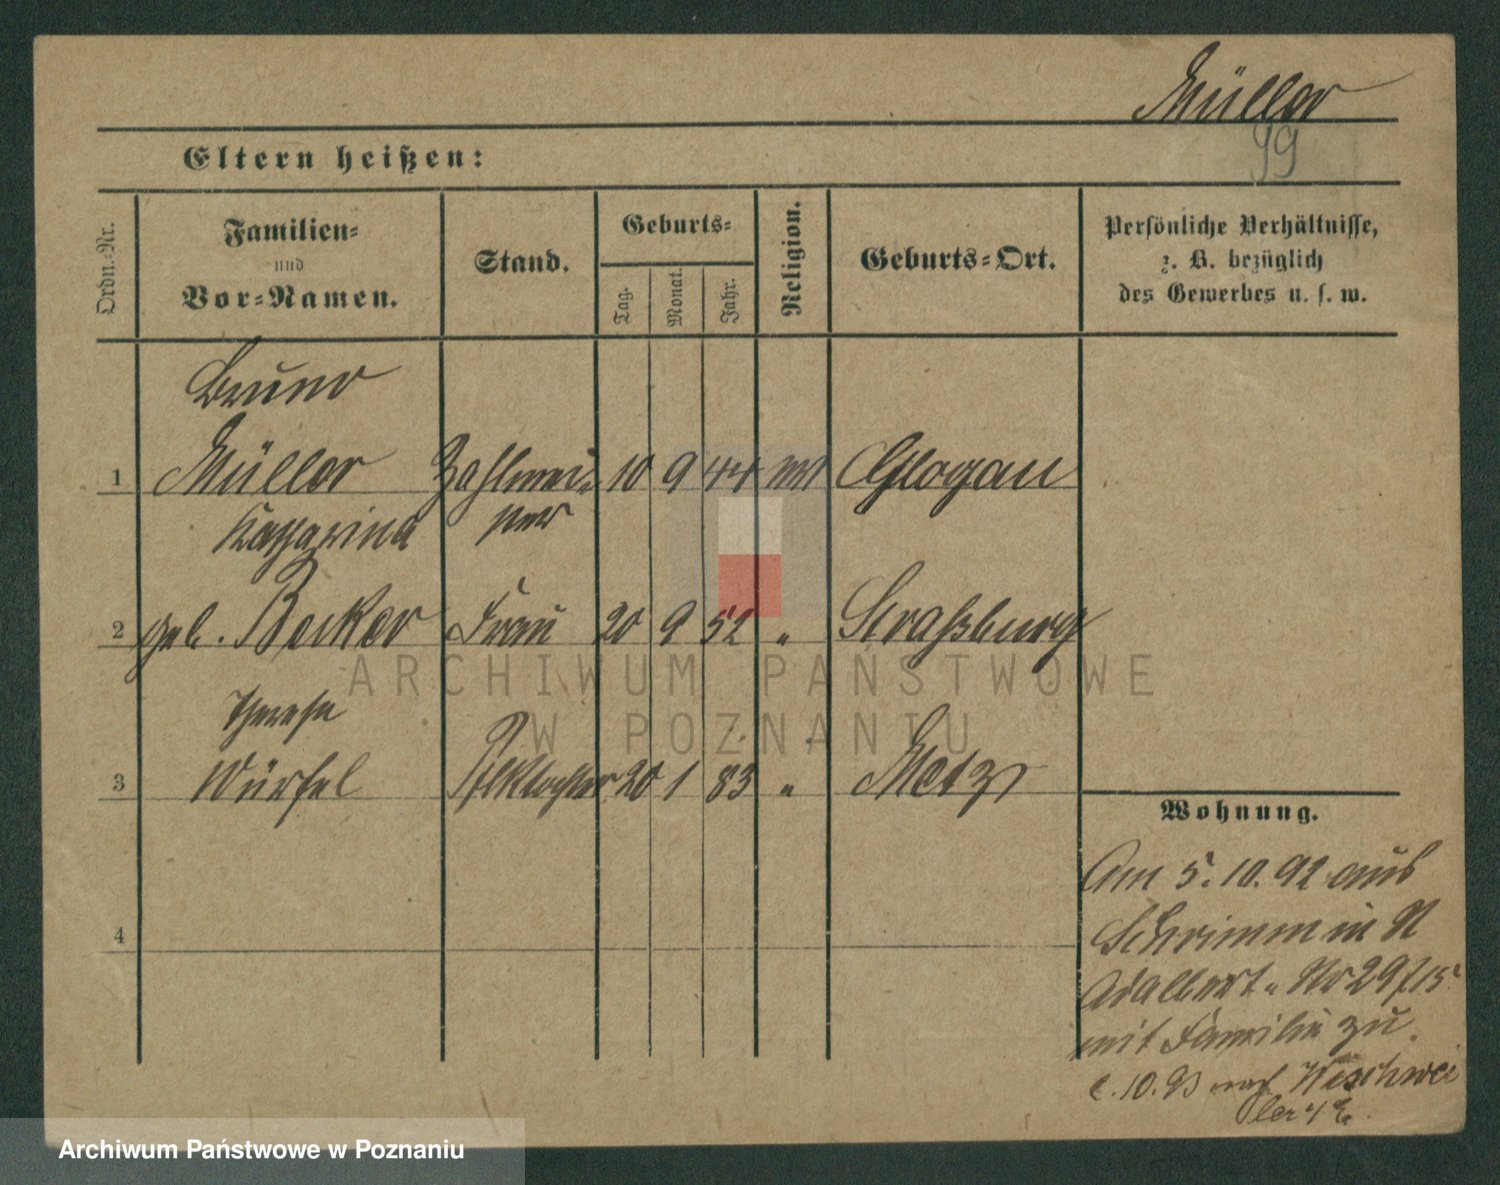 Müller
99
Eltern heißen:
Ordn.-Nr.
Familien-
und
Vor-Namen.
Stand.
Geburts-
Tag.
Monat.
Jahr.
Religion.
Geburts-Ort.
Persönliche Verhältnisse,
z. B. bezüglich
des Gewerbes u. s. w.
Bruno
1 Müller Zahlmei- 10 9 44 Glogau
Katharina ster
2 geb. Becker Frau 20 9 52 " Straßburg
Therese
3 Würfel Pflktochter 20 1 83 " Metz
4
Wohnung.
Am 5. 10. 92 aus
Schrimm in St
Adalbert. Nr 29/15
mit Familie zu.
10. 93 nach Weschwei
ler i/E.
ARCHIWUM PAŃSTWOWE
W POZNANIU
Archiwum Państwowe w Poznaniu